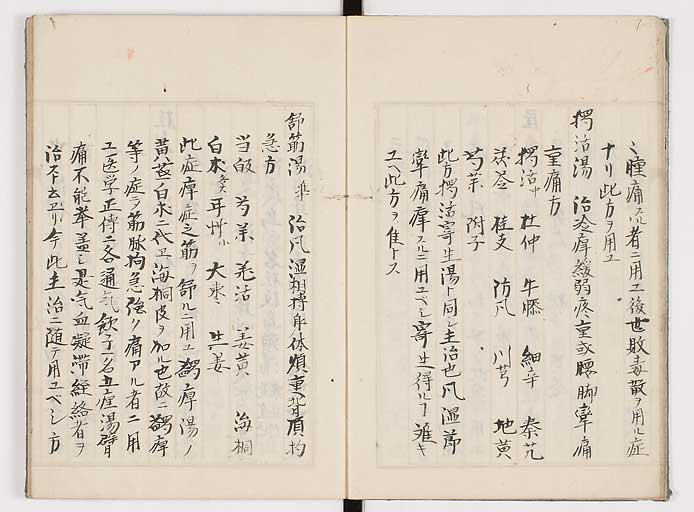 腫痛スル者ニ用ユ後世敗毒散ヲ用ル症
ナリ此方ヲ用ユ
獨活湯　治冷痺緩弱疼重或腰脚攣痛
重痛方
獨活　杜仲　牛膝　細辛　秦艽
茯苓　桂支　防風　川芎　地黄
芍薬　附子
此方獨活寄生湯ト同シ主治也風湿節
攣痛痺スルニ用ユベシ寄生得ルヿ難キ
ユヘ此方ヲ隹トス
舒筋湯　治風湿相搏身体煩重背項拘
急方
当皈　芍薬　羌活　姜黄　海桐
白朮　甘艸　大枣　生姜
此症痺症之筋ヲ舒ルニ用ユ蠲痺湯ノ
黄芪白朮ニ代ヱ海桐皮ヲ加ル也故ニ蠲痺
等ノ症ヨリ筋脉拘急強ク痛アル者ニ用
ユ医学正傳ニ各通氣飲子一名五痺湯臂
痛不能挙盖シ是气血凝滞経絡者ヲ
治不去ヱリ今此主治ニ随テ用ユベシ方